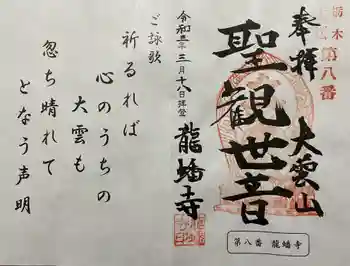 奉拝
栃木
第八番
大雲山
聖観世音
令和三年三月十八日拝登
龍蟠寺
第八番 龍蟠寺
ご詠歌
祈るれば
心のうちの
大雲も
忽ち晴れて
となう声明